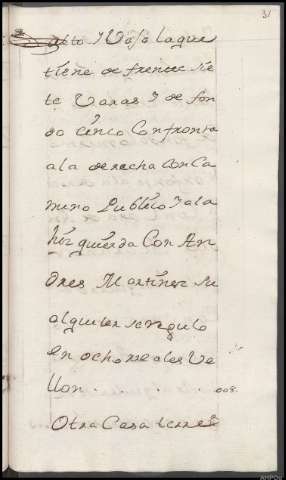 31
alto y vajo la que
tiene de frente sie
te varas y de fon
do cinco Confronta
a la derecha con Ca
mino Publico y a la
hizquierda Con An
dres Martinez su
alquiler se regulo
en ocho reales ve
llon . . . . 008.
Otra Casa terre
AHPOu